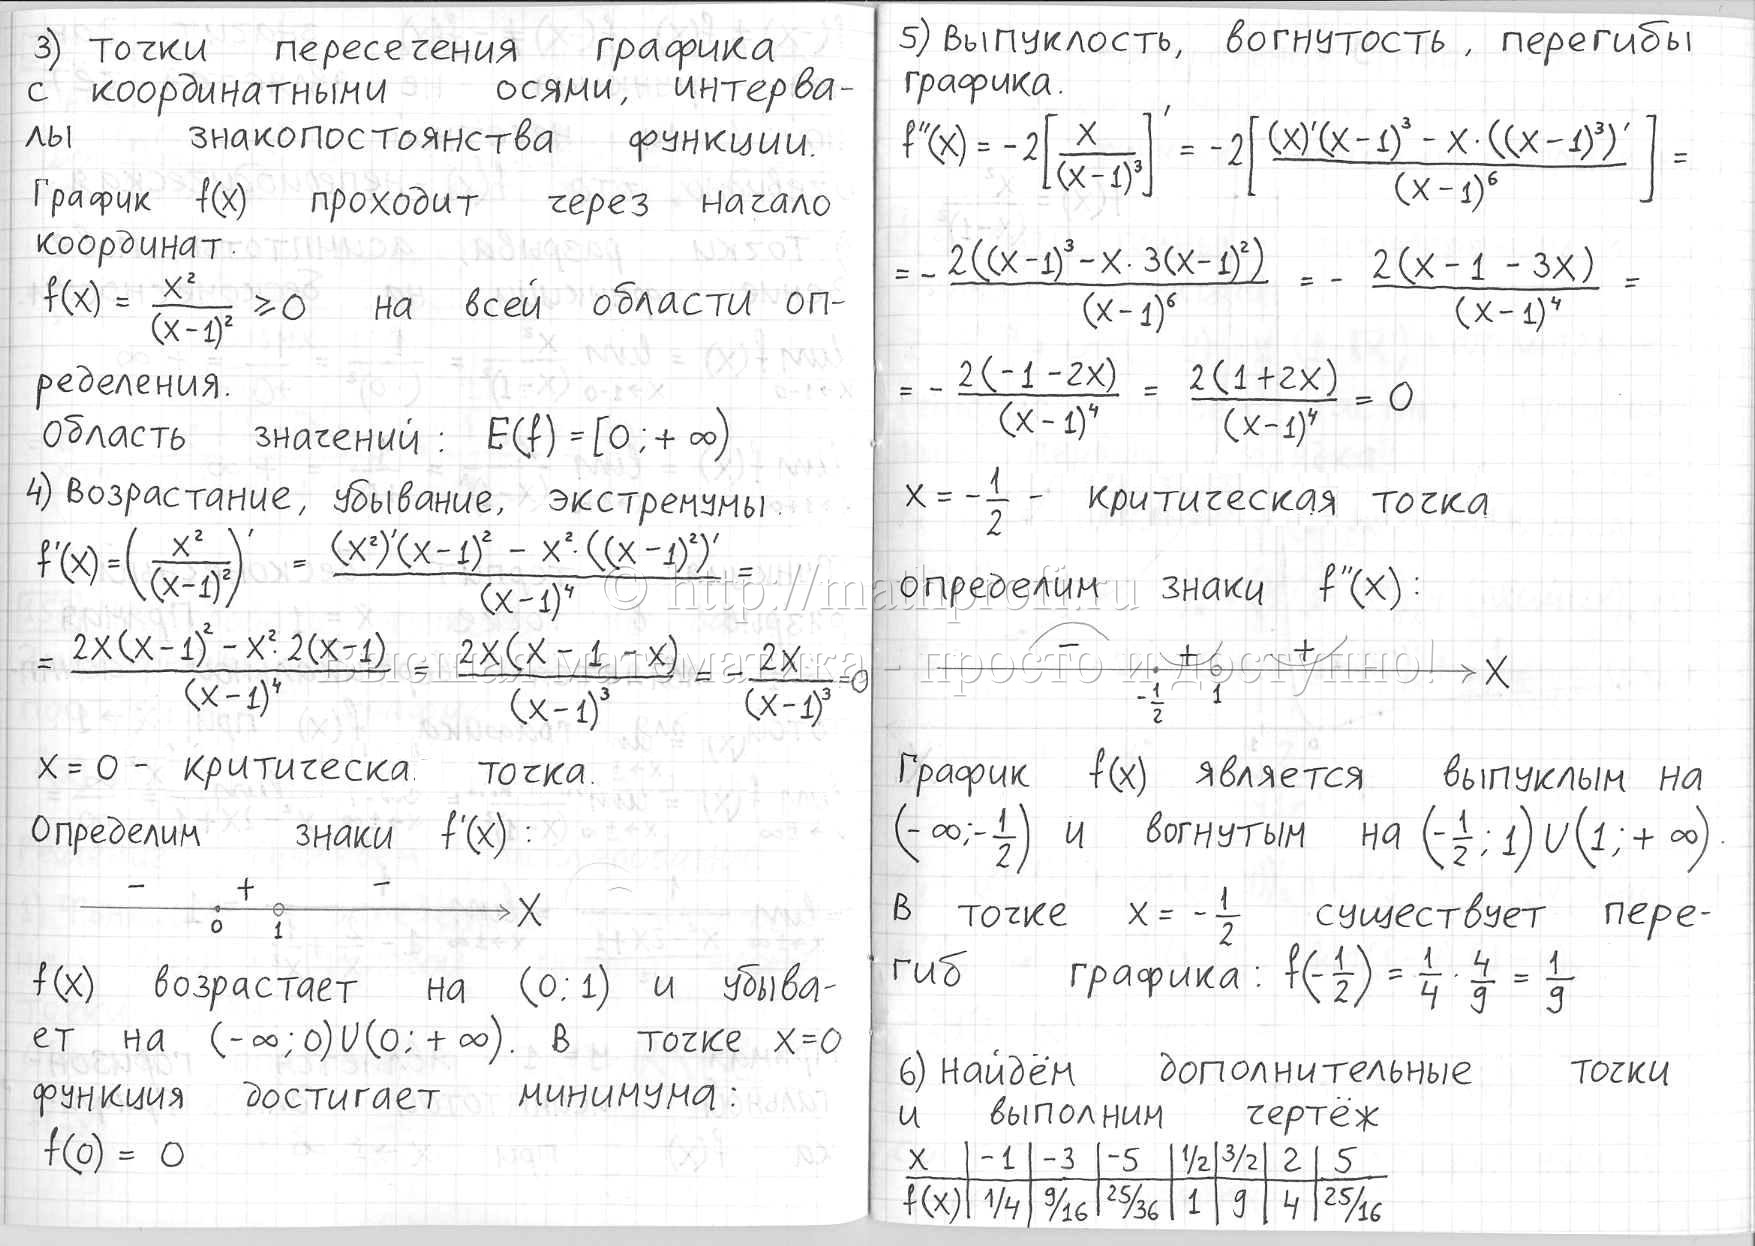 3) Точки пересечения графика
с координатными осями, интерва-
лы знакопостоянства функции.
График f(x) проходит через начало
координат.
f(x) = x²/(x-1)² ≥ 0 на всей области оп-
ределения.
Область значений: E(f) = [0; +∞)
4) Возрастание, убывание, экстремумы.
f'(x) = (x²/(x-1)²)' = ((x²)'(x-1)² - x²·((x-1)²)')/(x-1)⁴ =
= (2x(x-1)² - x²·2(x-1))/(x-1)⁴ = 2x(x-1-x)/(x-1)³ = -2x/(x-1)³ = 0
x = 0 - критическа точка.
Определим знаки f'(x):
- + -
0 1 X
f(x) возрастает на (0; 1) и убыва-
ет на (-∞; 0) U (0; +∞). В точке x=0
функция достигает минимума:
f(0) = 0
5) Выпуклость, вогнутость, перегибы
графика.
f''(x) = -2[x/(x-1)³]' = -2[((x)'(x-1)³ - x·((x-1)³)')/(x-1)⁶] =
= - 2((x-1)³ - x·3(x-1)²)/(x-1)⁶ = - 2(x-1-3x)/(x-1)⁴ =
= - 2(-1-2x)/(x-1)⁴ = 2(1+2x)/(x-1)⁴ = 0
x = -1/2 - критическая точка
определим знаки f''(x):
- + +
-1/2 1 X
График f(x) является выпуклым на
(-∞; -1/2) и вогнутым на (-1/2; 1) U (1; +∞).
В точке x = -1/2 существует пере-
гиб графика: f(-1/2) = 1/4 · 4/9 = 1/9
6) Найдём дополнительные точки
и выполним чертёж
x | -1 | -3 | -5 | 1/2 | 3/2 | 2 | 5
f(x) | 1/4 | 9/16 | 25/36 | 1 | 9 | 4 | 25/16
© http://mathprofi.ru
Высшая математика - просто и доступно!